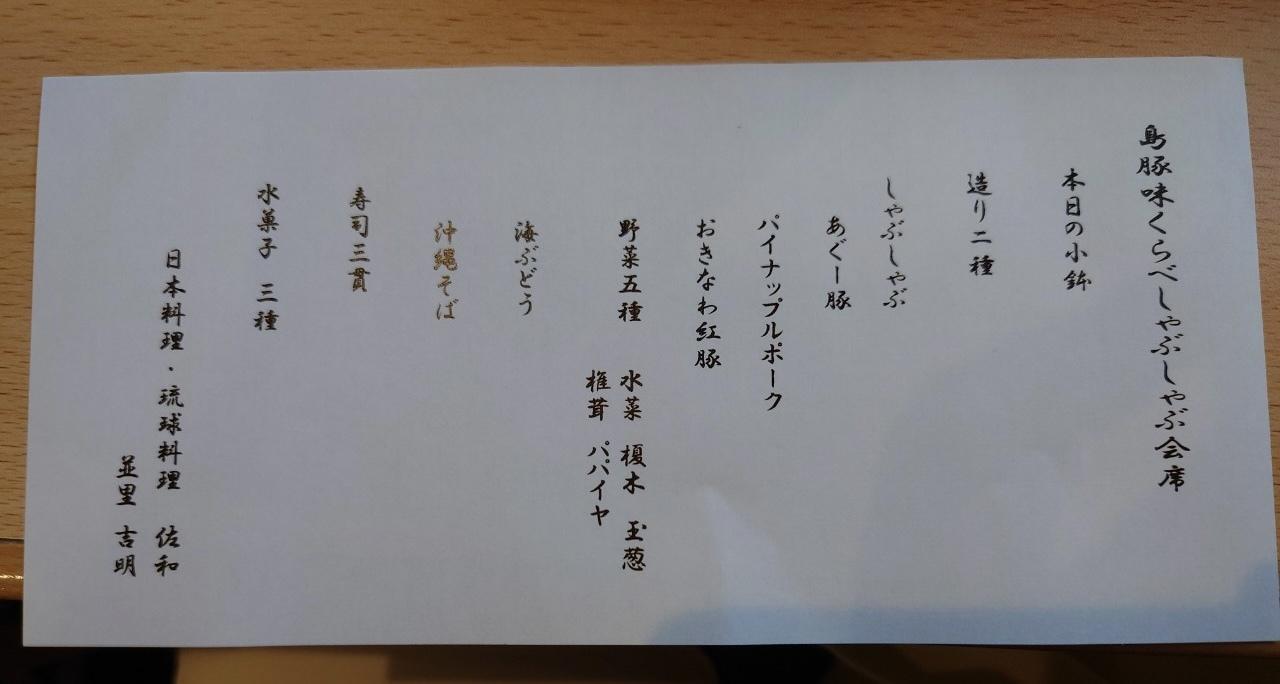 島豚味くらべしゃぶしゃぶ会席
本日の小鉢
造り二種
しゃぶしゃぶ
あぐー豚
パイナップルポーク
おきなわ紅豚
野菜五種 水菜 榎木 玉葱
椎茸 パパイヤ
海ぶどう
沖縄そば
寿司三貫
水菓子 三種
日本料理・琉球料理 佐和
並里 吉明